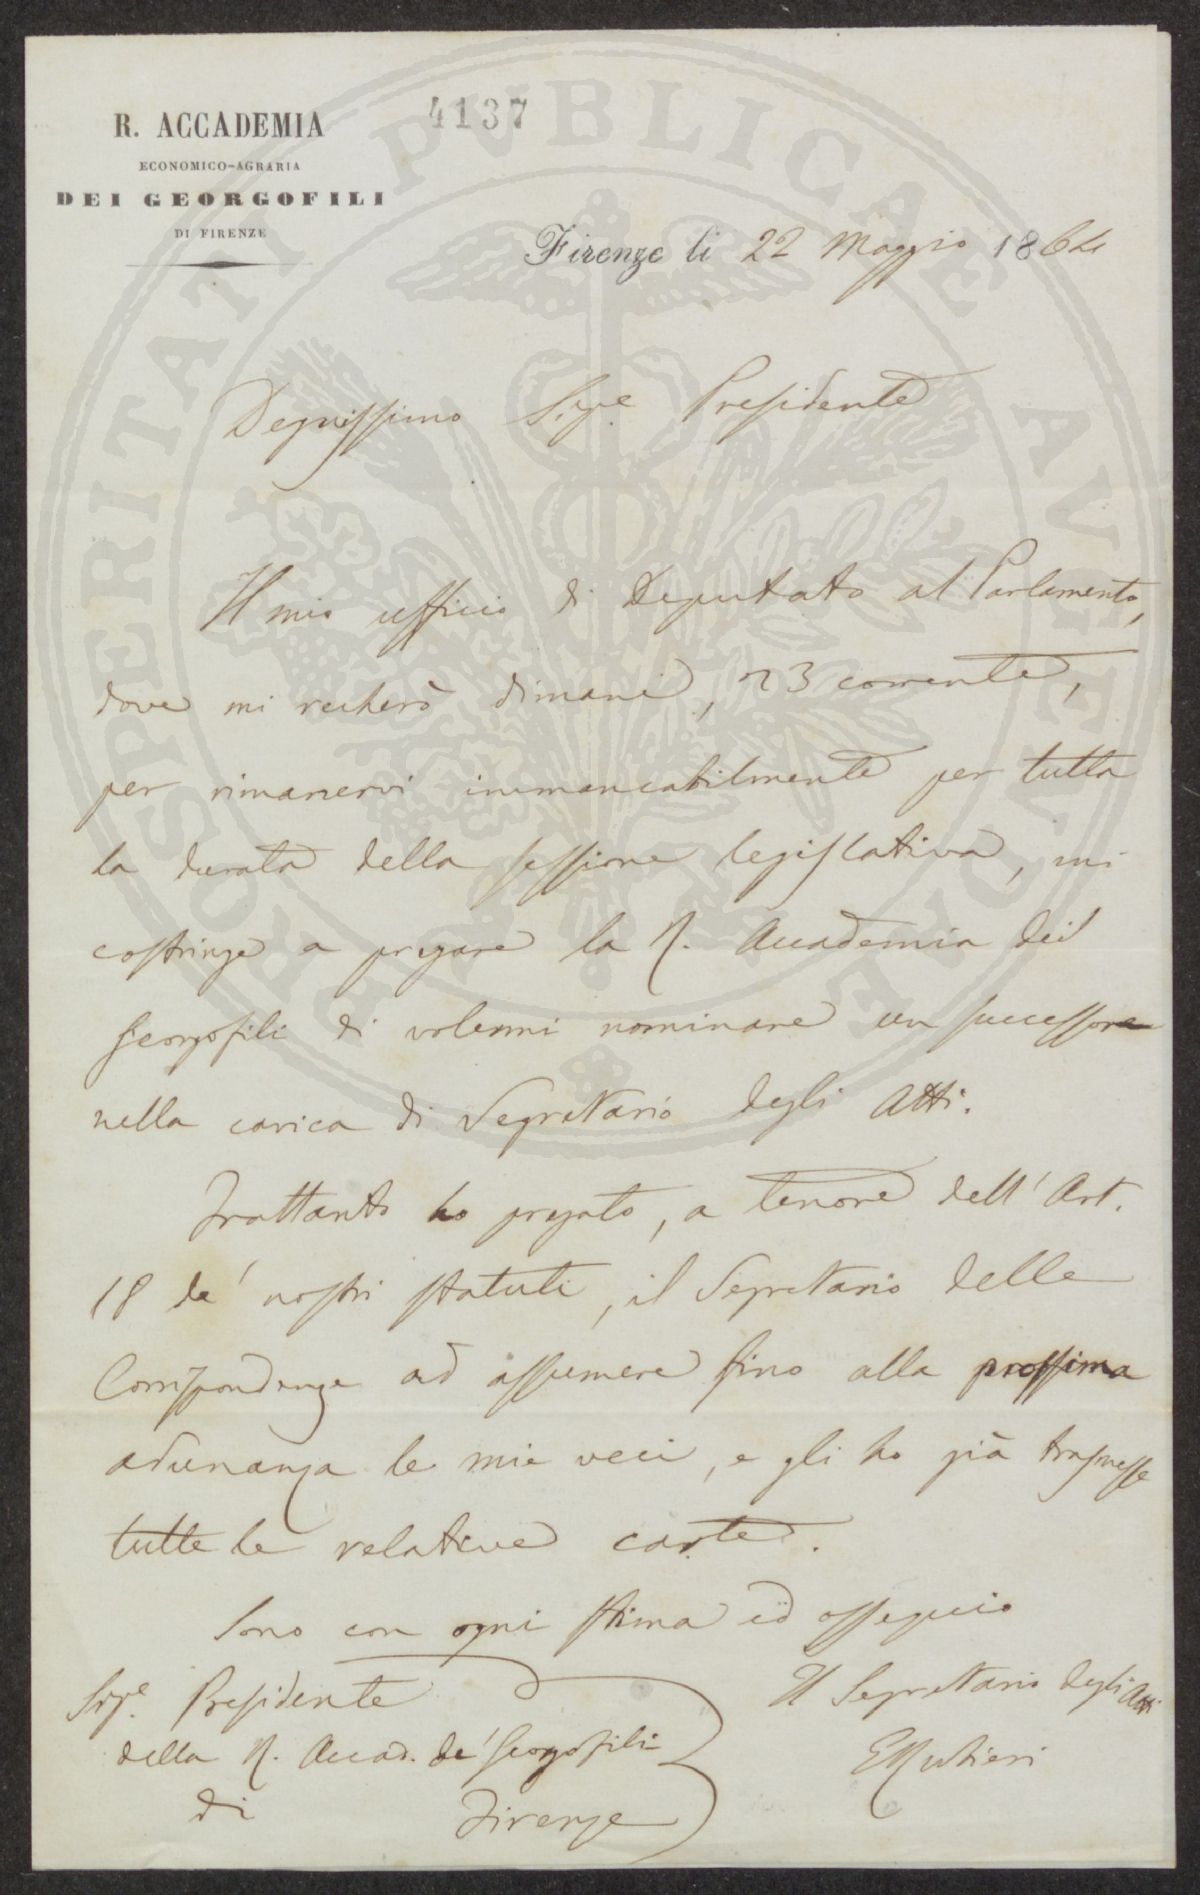 R. ACCADEMIA
ECONOMICO-AGRARIA
DEI GEORGOFILI
DI FIRENZE
4137
Firenze li 22 Maggio 1864
Degnissimo Sig.e Presidente
Il mio ufficio di Deputato al Parlamento,
dove mi recherò dimani, 23 corrente,
per rimanervi immancabilmente per tutta
la durata della sessione legislativa, mi
costringe a pregare la R. Accademia dei
Georgofili di volermi nominare un successore
nella carica di Segretario degli Atti.
Frattanto ho pregato, a tenore dell'Art.
18 de' nostri statuti, il Segretario delle
Corrispondenze ad assumere fino alla prossima
adunanza le mie veci, e gli ho già trasmesse
tutte le relative carte.
Sono con ogni stima ed ossequio
Il Segretario degli Atti
Sig.e Presidente
della R. Accad. de' Georgofili
di Firenze
PROSPERITATI PUBLICAE AUGENDAE